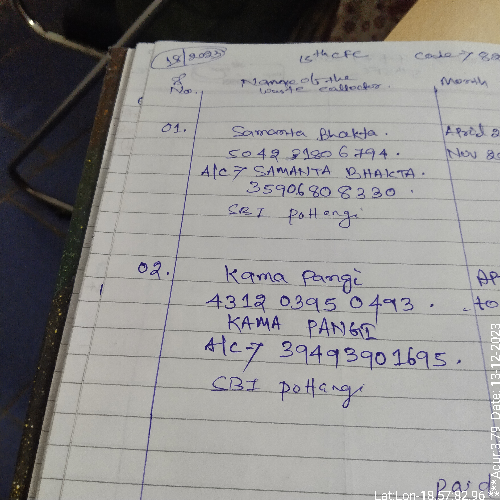 18/2023 15th CFC Code → 82
Sl No. Name of the waste collector. Month
01. Samanta Bhakta. April 2
5042 21806794. Nov 20
A/C → SAMANTA BHAKTA.
35906808330.
SBI pottangi
02. Kama Pangi AP
4312 0395 0493. to
KAMA PANGI
A/C → 39493901695.
SBI pottangi
Paid
Lat Lon-18.57:82.96 *** Acur:3.79 Date: 13-12-2023